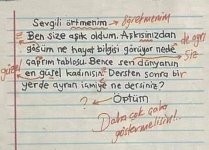 Sevgili örtmenim → öğretmenim
Ben size aşık oldum. Aşkısınızdan
gözüm ne hayat bilgisi görüyor nede
çaprım tablosu. Bence sen dünyanın → Siz
güzel en güsel kadınisin. Dersten sonra bir
yerde ayran içmiye ne dersiniz?
? ← Öptüm
Daha çok çaba
göstermelisin!..